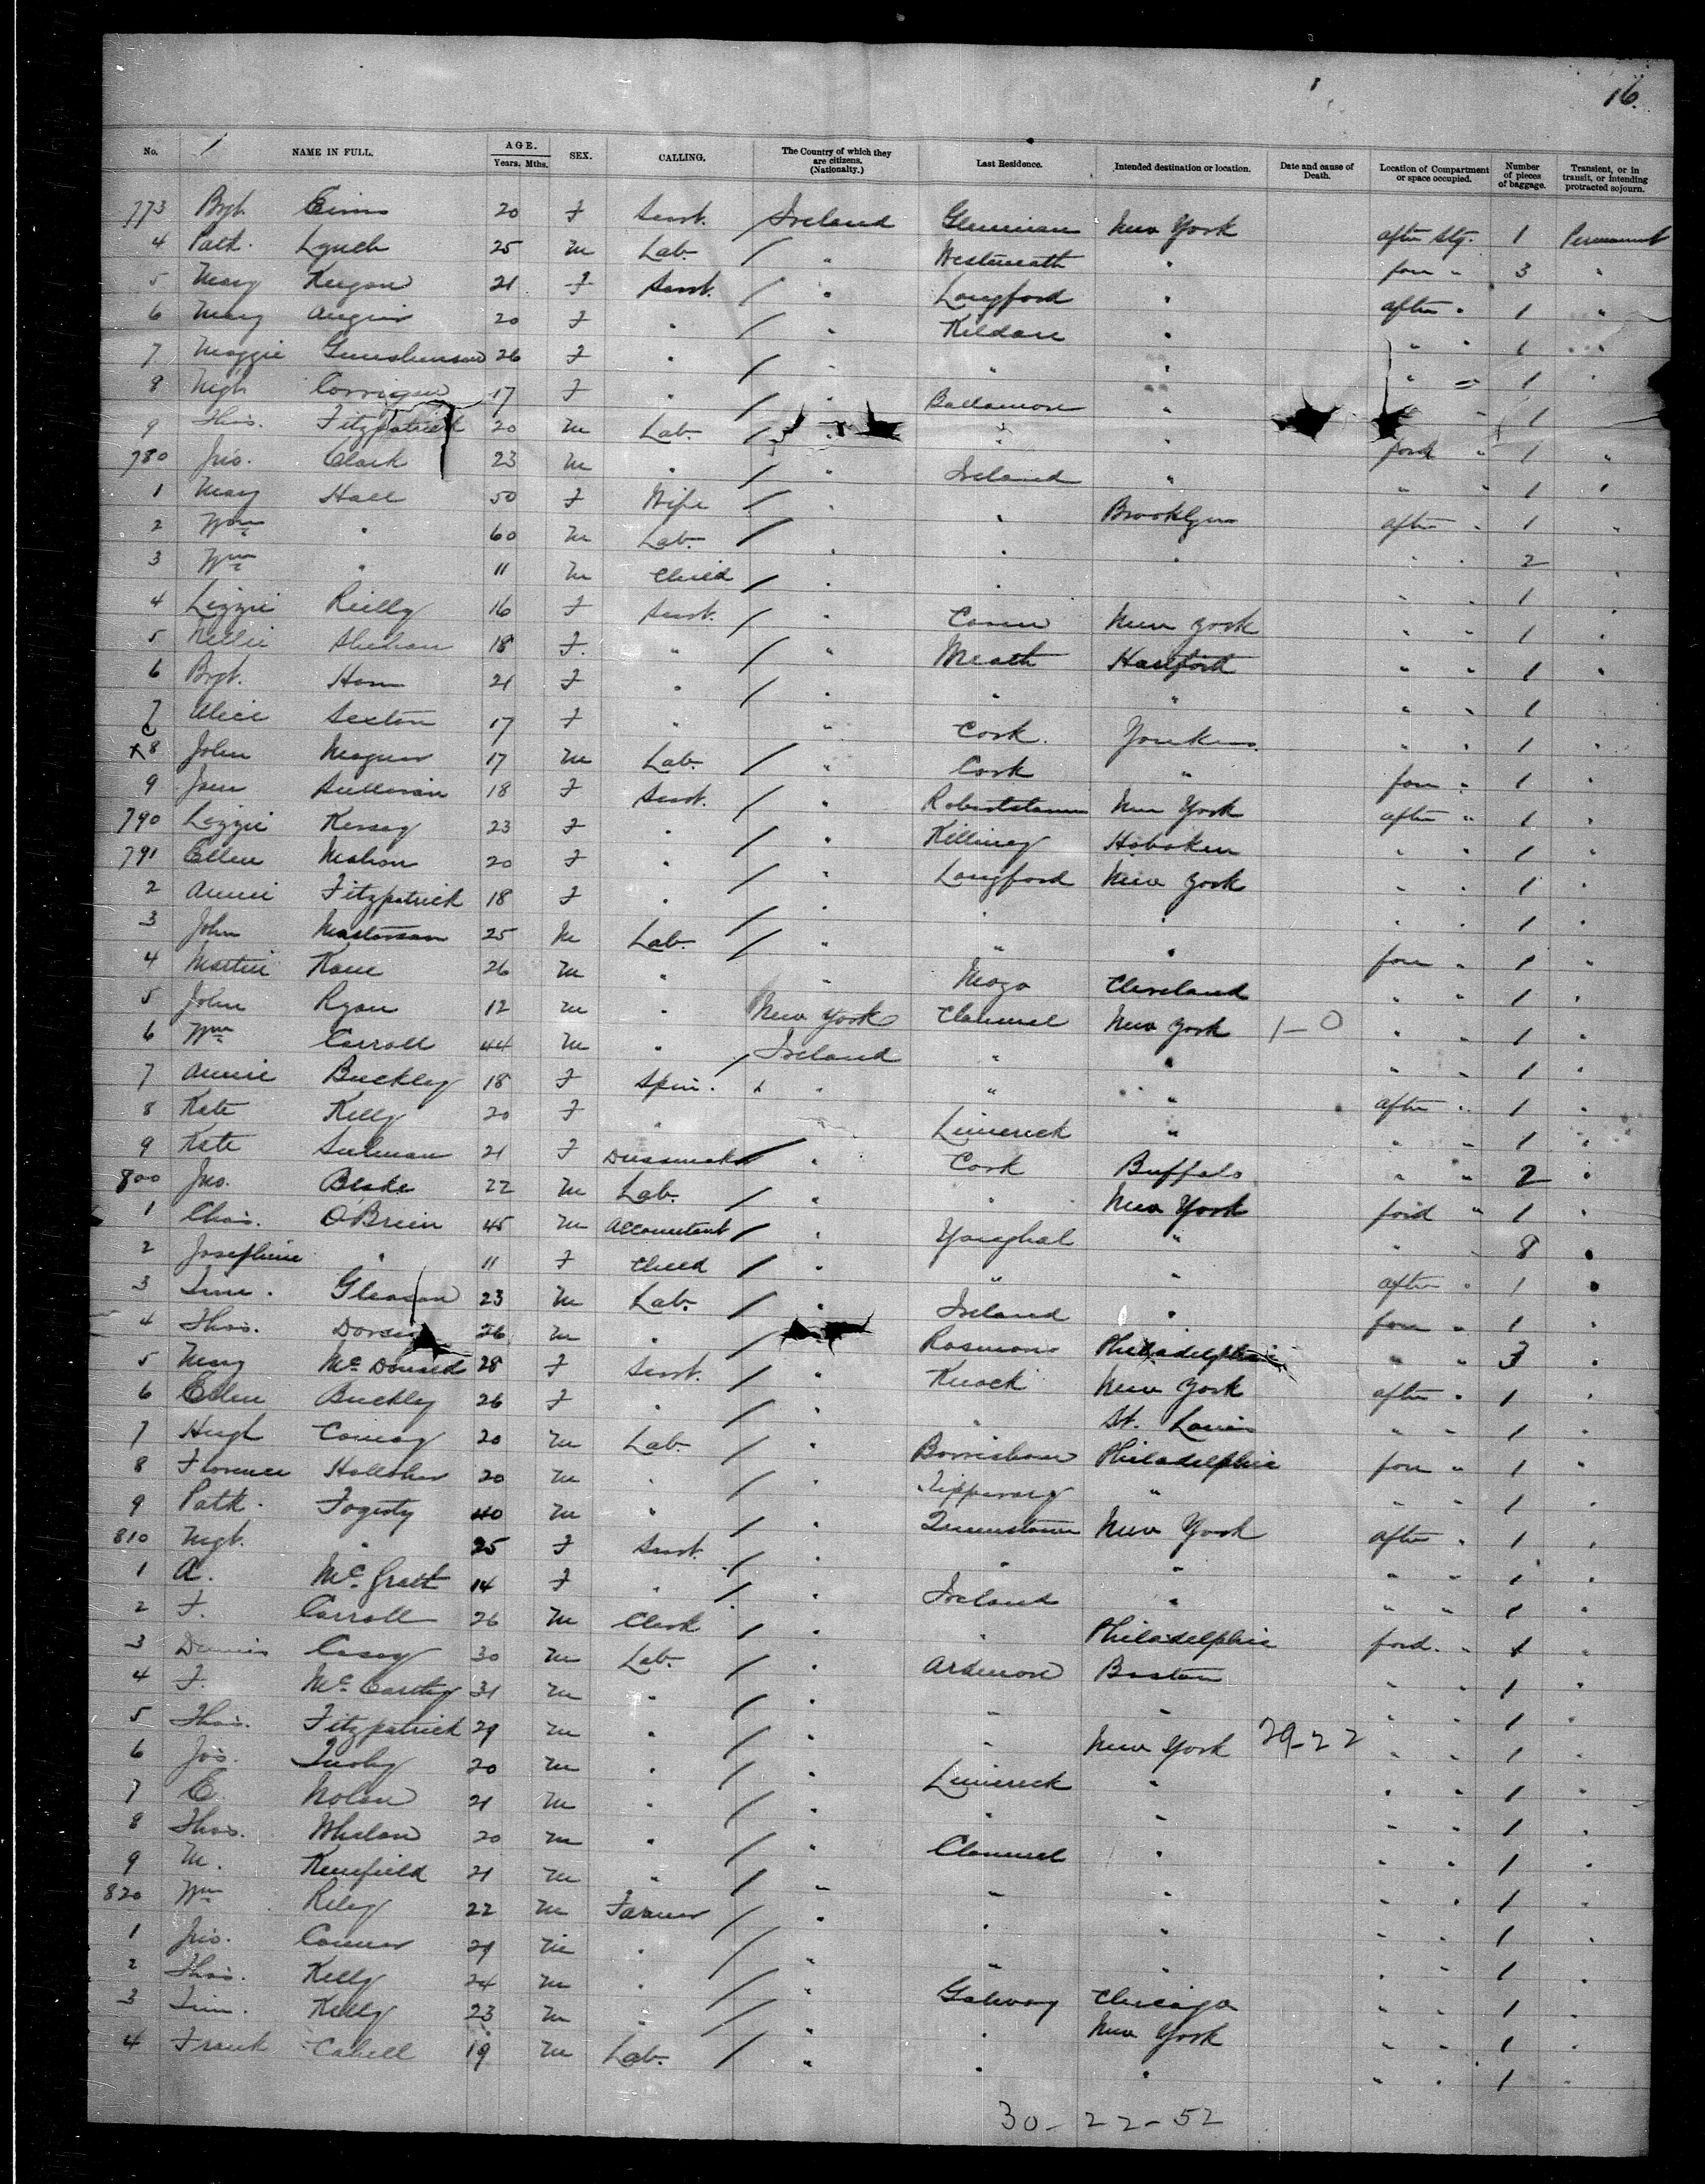 16.
No. NAME IN FULL. AGE. Years. Mths. SEX. CALLING. The Country of which they are citizens. (Nationalty.) Last Residence. Intended destination or location. Date and cause of Death. Location of Compartment or space occupied. Number of pieces of baggage. Transient, or in transit, or intending protracted sojourn.
773 Brgt. 20 F Servt. Ireland New York after Stg. 1 Permanent
4 Patk. Lynch 25 M Lab. / " Westmeath " for " 3 "
5 Mary Keegan 21 F Servt. / " Longford " after " 1 "
6 Mary 20 F " / " Kildare " " " 1 "
7 Maggie 26 F " / " " " " " 1 "
8 Corrigan 17 F " / " " " 1
9 Thos. Fitzpatrick 20 M Lab. / " " " ford " 1 "
780 Jno. Clark 23 M " / " Ireland " " " 1 "
1 Mary Hall 50 F Wife / " " Brooklyn after " 1 "
2 Wm " 60 M Lab. / " " " " " 2 "
3 Wm " 11 M Child / " " " " 1 "
4 Lizzie Reilly 16 F Servt. / " Cavan New York " " 1 "
5 Nellie Sheehan 18 F. " / " Meath Hartford " " 1 "
6 Brgt. 21 F " / " " " " " 1
7 Alice Sexton 17 F " " Cork. Yonkers. " " 1 "
x8 John 17 M Lab. / " Cork " for " 1 "
9 Jane Sullivan 18 F Servt. / " Robertstown New York after " 1 "
790 Lizzie Kersey 23 F " / " Killiney Hoboken " " 1 "
791 Ellen Mahon 20 F " / " Longford New York " " 1 "
2 Annie Fitzpatrick 18 F " / " " " " " 1 "
3 John Masterson 25 M Lab. / " " " for " 1 "
4 Martin Kane 26 M " " Mayo Cleveland " " 1 "
5 John Ryan 12 M " New York Clonmel New York 1-0 " " 1 "
6 Wm Carroll 44 M " / Ireland " " " " 1 "
7 Annie Buckley 18 F Spin. " " " after " 1 "
8 Kate Kelly 20 F " " Limerick " " " 1 "
9 Kate 21 F Dressmaker / " Cork Buffalo " " 2 "
800 Jno. 22 M Lab. / " " New York ford " 1 "
1 Chas. O'Brien 45 M Accountant / " Youghal " " " 8 "
2 Josephine " 11 F Child / " " " after " 1 "
3 Tim. Gleason 23 M Lab. / " Ireland " for " 1 "
4 Thos. 26 M " / Philadelphia " " 3 "
5 Mary McDonald 28 F Servt. / " Knock New York after " 1 "
6 Ellen Buckley 26 F " / " " St. Louis " " 1 "
7 Hugh 20 M Lab. / " Philadelphia for " 1 "
8 Florence 20 M " / " Tipperary " " " 1 "
9 Patk. Fogerty 40 M " / " Queenstown New York after " 1 "
810 Mgt. " 25 F Servt. / " " " " " 1 "
1 A. McGrath 14 F " / " Ireland " " " 1 "
2 F. Carroll 26 M Clerk / " " Philadelphia ford. " 1 "
3 Dennis Casey 30 M Lab. / " Ardmore Boston " " 1 "
4 F. McCarthy 31 M " / " " " " " 1 "
5 Thos. Fitzpatrick 29 M " / " " New York 29-22 " " 1 "
6 Jos. 20 M " / " Limerick " " " 1 "
7 E. Nolan 21 M " / " " " " " 1 "
8 Thos. Whelan 20 M " / " Clonmel " " " 1 "
9 M. Kenefield 21 M " / " " " " " 1 "
820 Wm Riley 22 M Farmer / " " " " " 1 "
1 Jno. Connor 21 M " / " " " " " 1 "
2 Thos. Kelly 24 M " / " Galway Chicago " " 1 "
3 Tim. Kelly 23 M " / " " New York " " 1 "
4 Frank Cahill 19 M Lab. / " " " " " 1
30-22-52